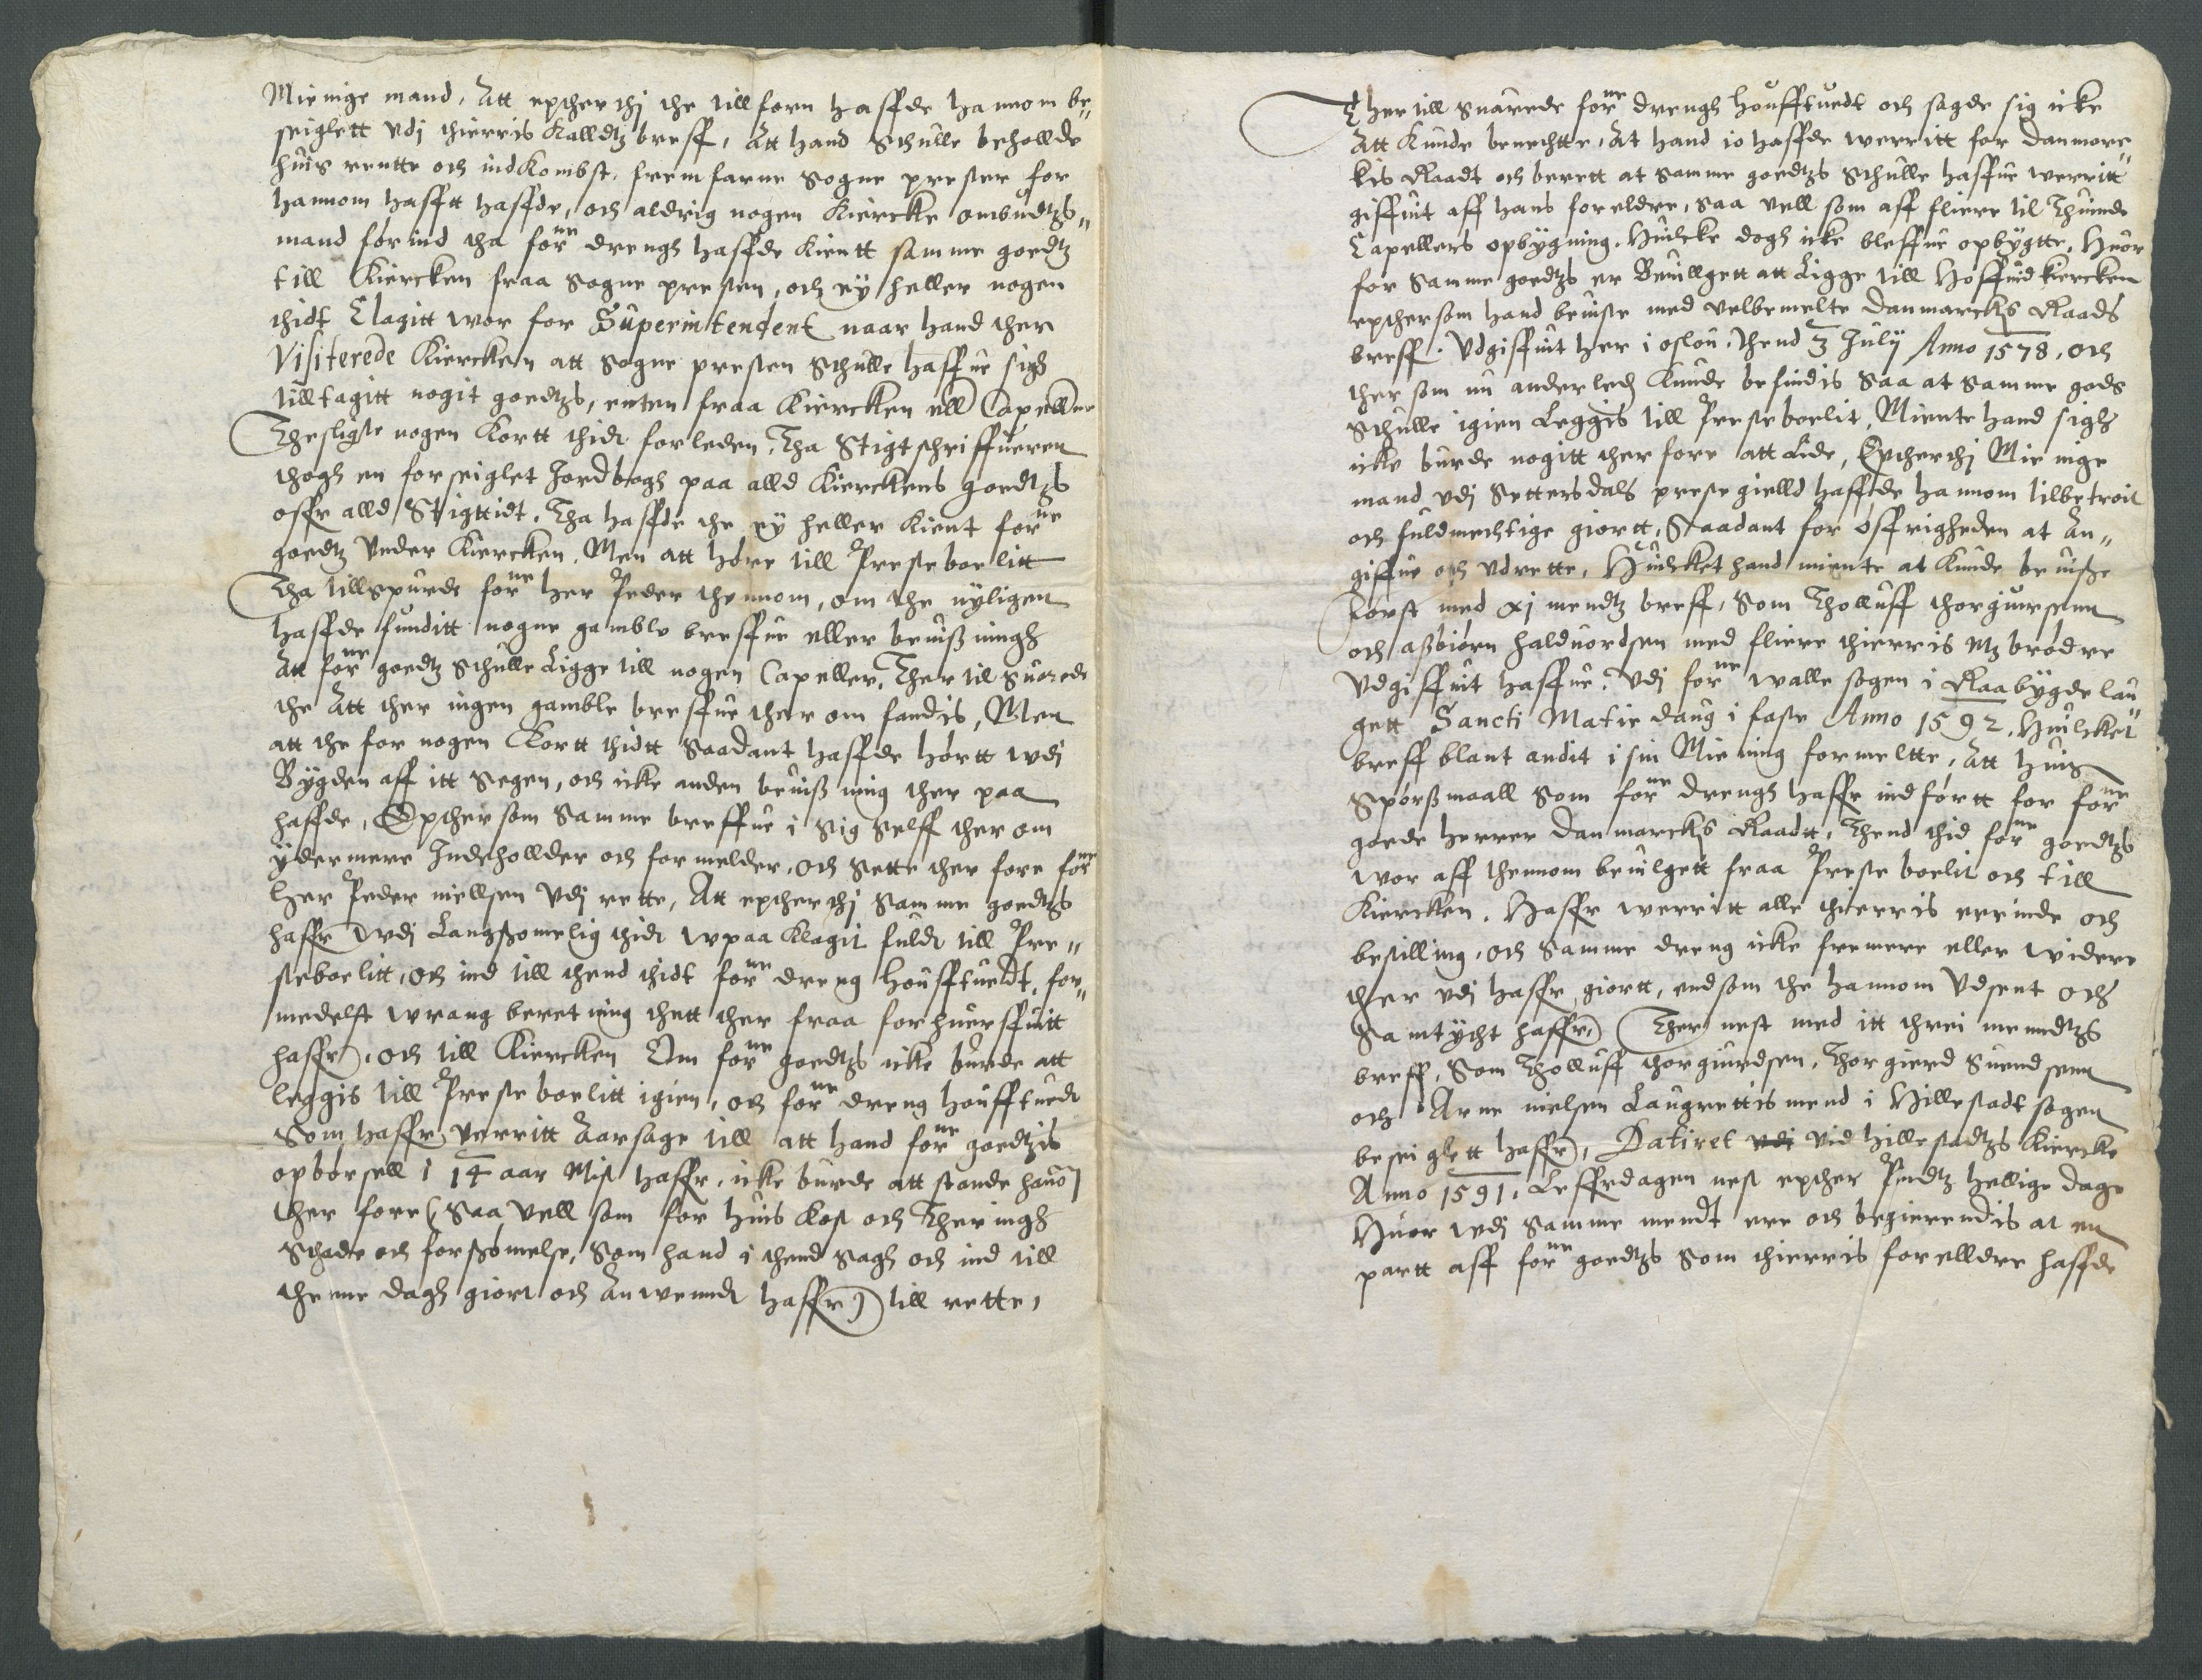 Mienige mand, Att epther thj the till forn haffde hannom be„
seiglett vdj thierris Kalldtz breff, Att hand schulle beholde
huis rentte och indkombst, fremfarne sogne prester for
hannom hafftt haffde, och aldrig nogen Kiercke ombudtzs„
mand forind tha forne drengh haffde Kientt samme goedtz
till Kiercken fraa sogne presten, och ey heller nogen
thidt Clagitt wor for Superintendent naar hand ther
Visiterede Kiercken att sogne presten schulle haffue sigh
tilltagitt nogit goedtzs, enten fraa Kiercken ell Capeller
Thesligste nogen Kortt thidt forleden, Tha Stigtschriffueren
thogh en forseiglet Jordbogh paa alld Kierckens goedtzs
offr alld Stigttidt, Tha haffde the ey heller Kient forne
goedtz vnder Kiercken, Men att høre till Preste boelitt
Tha tillspurde forne her Peder thennom, om the nyligen
haffde funditt nogne gamble breffue eller beuißningh
Att forne goedtz schulle Ligge till nogen Capeller, Ther til suarede
the Att ther ingen gamble breffue ther om fandis, Men
att the for nogen Kortt thidtt saadant haffde hørtt wdi
Bygden aff itt segen, och icke anden beuißning ther paa
haffde, Epthersom samme breffue i sig selff ther om
ydermere Indehollder och formelder, och sette ther fore forne
Her Peder niellsen vdj rette, Att epther thj samme goedtzs
haffr wdi Langßomelig thidt wpaaklagit fuldt till Pre„
steboelitt, och ind till thend thidt forne dreng Houfftuedt, for„
medelst wrang beretning thett ther fraa forhuerffuitt
haffr, och till Kiercken Om forne goedtzs icke burde att
leggis till Preste boelitt igien, och forne dreng houfftuedt
som haffr verritt Aarsage till att hand forne goedtzis
opbørsell i 14 aar Mist haffr, icke burde att stande hannom
ther fore (saa vell som for huis Kost och Theringh
schade och forsømelse, som hand i thend sagh och ind till
thenne dagh giort och Anwendt haffr) till rette,
Ther till suarede forne drengh Houfftuedt och sagde sig icke
Att Kunde benechtte, At hand io haffde werritt for danmarc
kis Raadt och berett at samme goedtzs schulle haffue werritt
giffuit aff hans foreldre, saa vell som aff fliere til Thuinde
Capellers opbygning, Huilcke dogh icke bleffue opbygtte, Huor
for samme goedtzs er Beuillgett att Ligge till Hoffuidkiercken
epthersom hand beuiste med velbemelte danmarckis Raads
breff. Vdgiffuit her i oslou, Thend 3 July Anno 1578, och
ther som nu anderledh Kunde befindis saa at samme gods
schulle igien Leggis till Preste boelit, Miente hand sigh
icke burde nogitt ther fore att Lide, Epther thj Mienige
mand vdj Settersdals preste gielld haffde hannom tilbetroit
och fuldmechtige giortt, Saadant for øffrigheden at An„
giffue och vdrette, Huilcket hand miente at Kunde beuiße
først med xj mendtz breff, som Tholluff thorgiuersenn
och aßbiørn halduordsen med fliere thierris M brødre
Vdgiffuit haffue, vdj forne walle sogen i Raabygdelau
gett Sancti Matie daug i faste Anno 1592. Huilcket
breff blant andit i sin Miening formeltte, Att huis
spørßmaall som forne drengh haffr indførtt for forne
goede herrer danmarckis Raadtt, Thend thid forne goedtzs
wor aff thennom beuilgett fraa Preste boelit och till
Kiercken. Haffr werritt alle thierris erinde och
bestilling, och samme dreng icke fremere eller widere
ther vdj haffr giortt, end som the hannom vdsent och
samtycht haffr) Ther nest med itt threi menndtzs
breff, som Tholluff thorgiurdsen, Thorgierd suendsenn
och Arne nielsen Laugrettis mend i Hillestadt sogen
beseiglett haffr, Datiret vdi vid hillestadtzs Kiercke
Anno 1591, Løffuerdagen nest epther Pindtz hellige dage
Huor wdj samme mendt ere och begierendis at en
partt aff forne goedtzs som thierris forelldre haffde